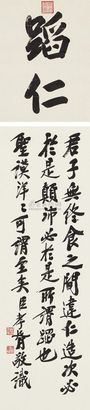 蹈仁
君子無終食之間違仁造次必
於是顛沛必於是所謂蹈也
聖謨洋洋可謂至矣臣孝胥敬識